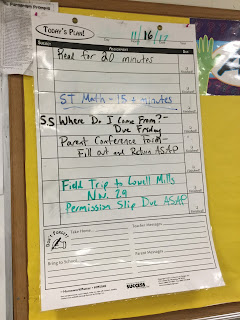 TODAY'S PLAN!
11/16/17
SUBJECT ASSIGNMENT
Read for 20 minutes
ST Math - 15+ minutes
S.S Where Do I Come From?-
Due Friday
Parent Conference Form-
Fill out and Return ASAP
Field Trip to Lowell Mills
Nov. 29
Permission Slip Due ASAP
DON'T FORGET!
Take Home:
Teacher Messages:
Bring to School:
Parent Messages:
SUCCESS